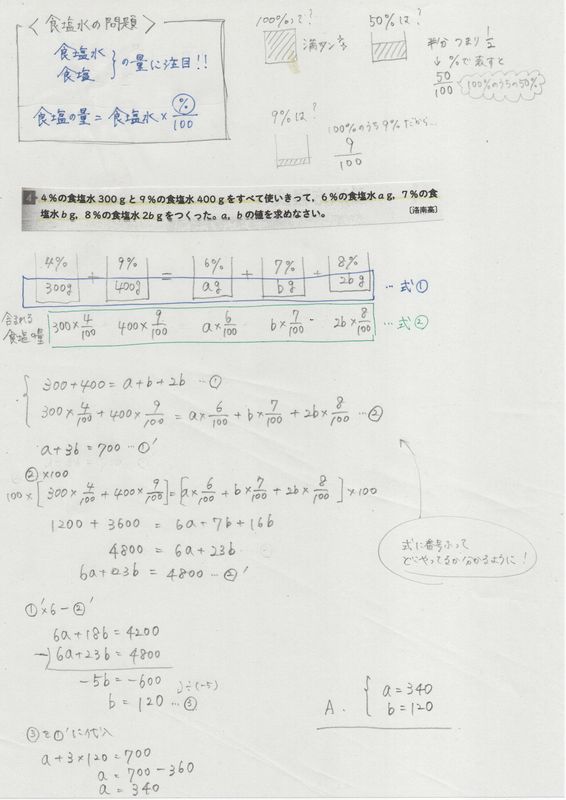 ＜食塩水の問題＞
食塩水
食塩
}の量に注目!!
食塩の量 = 食塩水 × %/100
100%って?
満タン
50%は?
半分 つまり 1/2
↓ %で表すと
50/100
100%のうちの50%
9%は?
100%のうち9%だから…
9/100
4 4%の食塩水300gと9%の食塩水400gをすべて使いきって，6%の食塩水ag，7%の食
塩水bg，8%の食塩水2bgをつくった。a，bの値を求めなさい。
〔洛南高〕
4% 9% 6% 7% 8%
300g + 400g = ag + bg + 2bg …式①
含まれる
食塩の量
300×4/100 400×9/100 a×6/100 b×7/100 2b×8/100 …式②
{ 300+400 = a+b+2b …①
300×4/100 + 400×9/100 = a×6/100 + b×7/100 + 2b×8/100 …②
a+3b = 700 …①′
②×100
100×[300×4/100 + 400×9/100] = [a×6/100 + b×7/100 + 2b×8/100]×100
1200 + 3600 = 6a+7b+16b
4800 = 6a+23b
6a+23b = 4800 …②′
式に番号ふって
どこやってるか分かるように!
①′×6−②′
6a+18b = 4200
−)6a+23b = 4800
−5b = −600
÷(−5)
b = 120 …③
③を①′に代入
a+3×120 = 700
a = 700−360
a = 340
A. { a = 340
b = 120